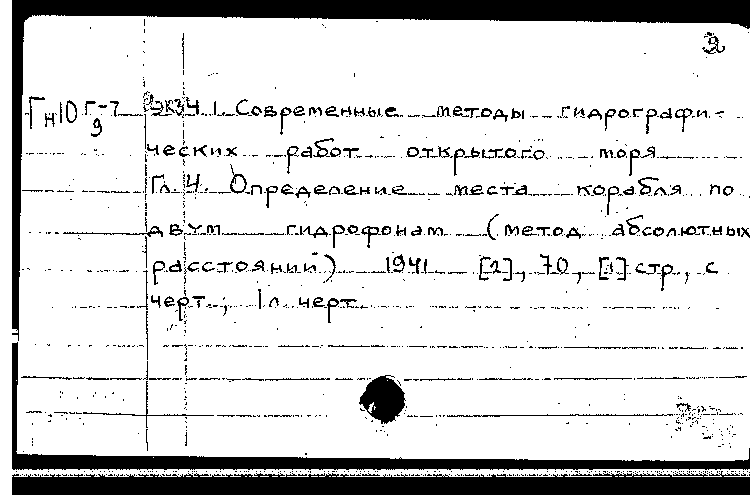 Гн10 Г-7 экз4.1. Современные методы гидрографи-
9
ческих работ открытого моря
Гл. 4. Определение места корабля по
двум гидрофонам (метод абсолютных
расстояний) 1941 [2], 70, [1] стр., с
черт.; 1 л. черт.